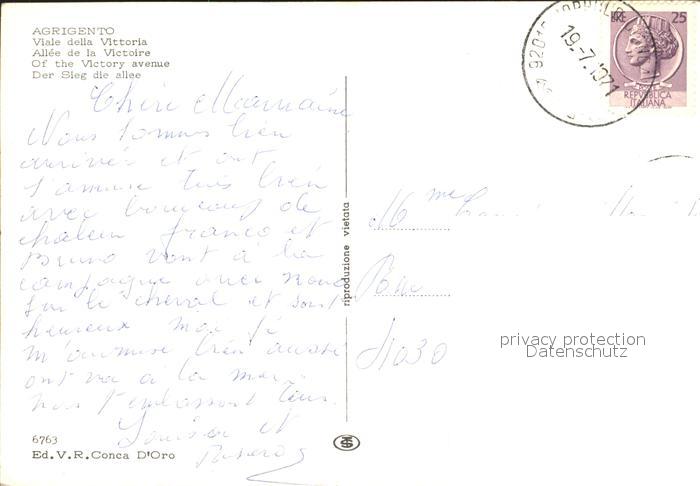 AGRIGENTO
Viale della Vittoria
Allée de la Victoire
Of the Victory avenue
Der Sieg die allee
LIRE 25
REPVBBLICA
ITALIANA
92010
19.-7.1971
Chère Marraine
Nous sommes bien
arrivés et ont
s'amuse très bien
avec boucoup de
chaleur franco et
Bruno vont à la
campagne avec nono
sur le cheval et sont
heureux moi je
m'ammuse bien aussi
ont va à la mer
nos t'embrassont tous.
Louisa et
riproduzione vietata
Mme
Rue
4030
privacy protection
Datenschutz
6763
Ed.V.R.Conca D'Oro